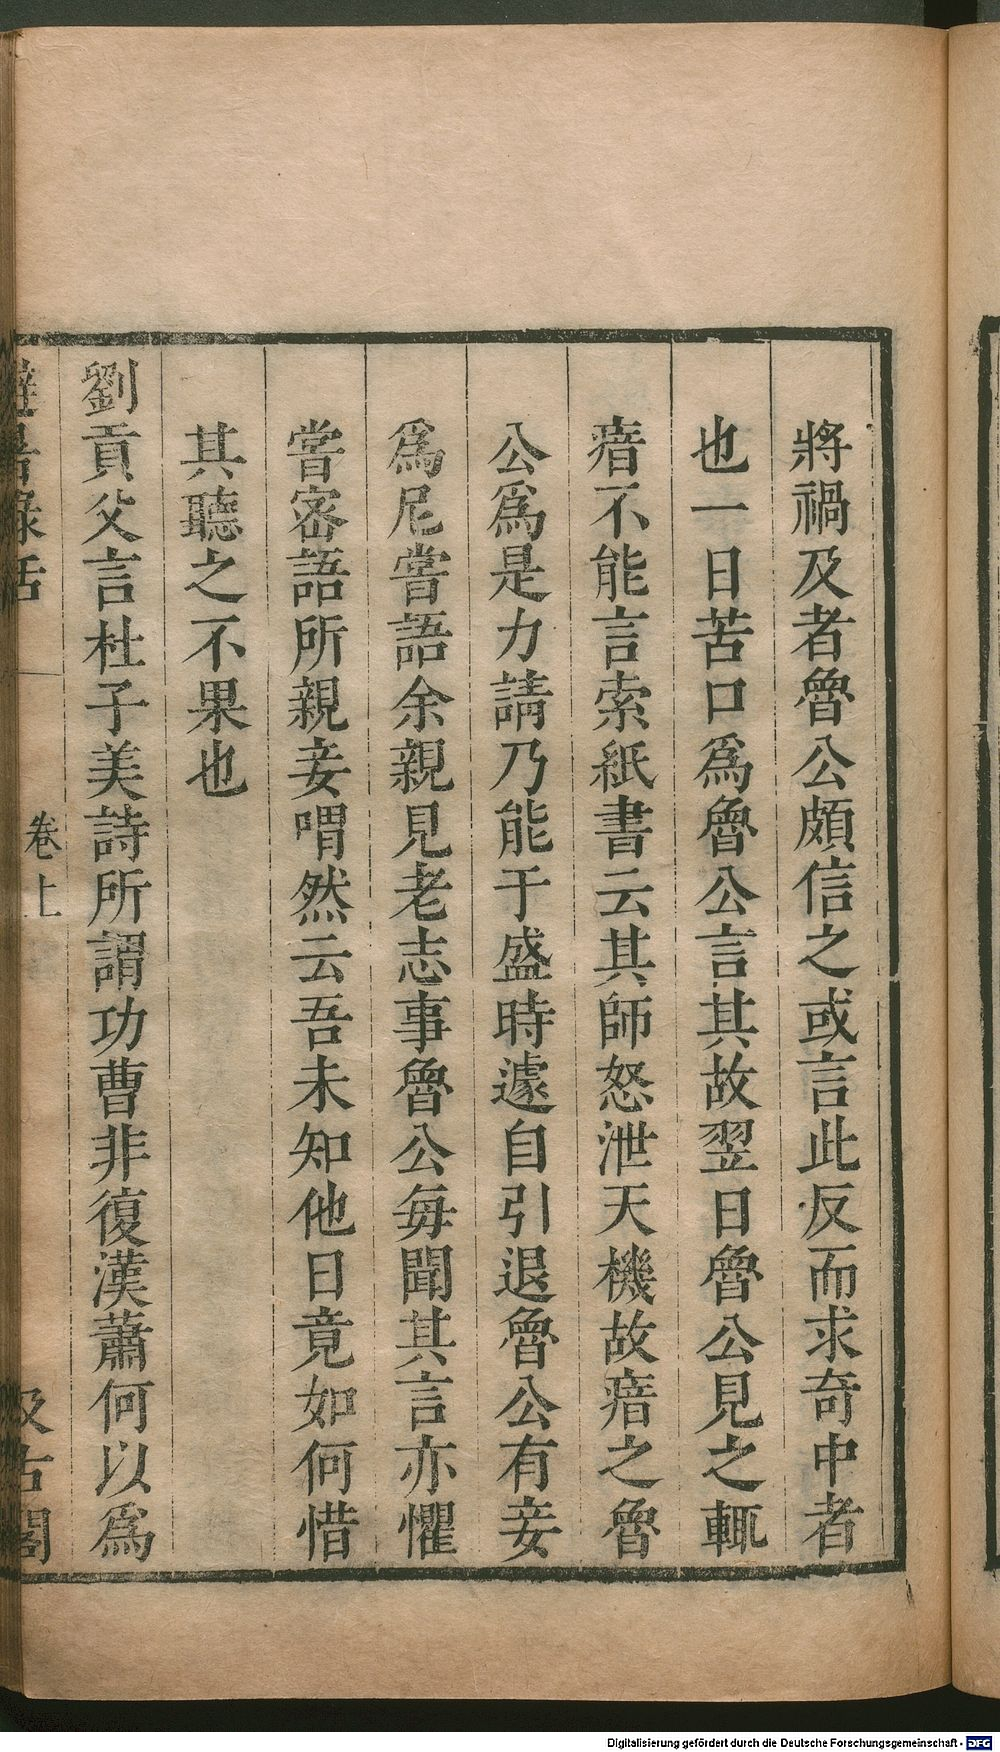 將禍及者魯公頗信之或言此反而求奇中者
也一日苦口爲魯公言其故翌日魯公見之輒
瘖不能言索紙書云其師怒泄天機故瘖之魯
公爲是力請乃能于盛時遽自引退魯公有妾
爲尼嘗語余親見老志事魯公每聞其言亦懼
嘗密語所親妾喟然云吾未知他日竟如何惜
其聽之不果也
劉貢父言杜子美詩所謂功曹非復漢蕭何以爲
避暑錄話
卷上
汲古閣
Digitalisierung gefördert durch die Deutsche Forschungsgemeinschaft - DFG